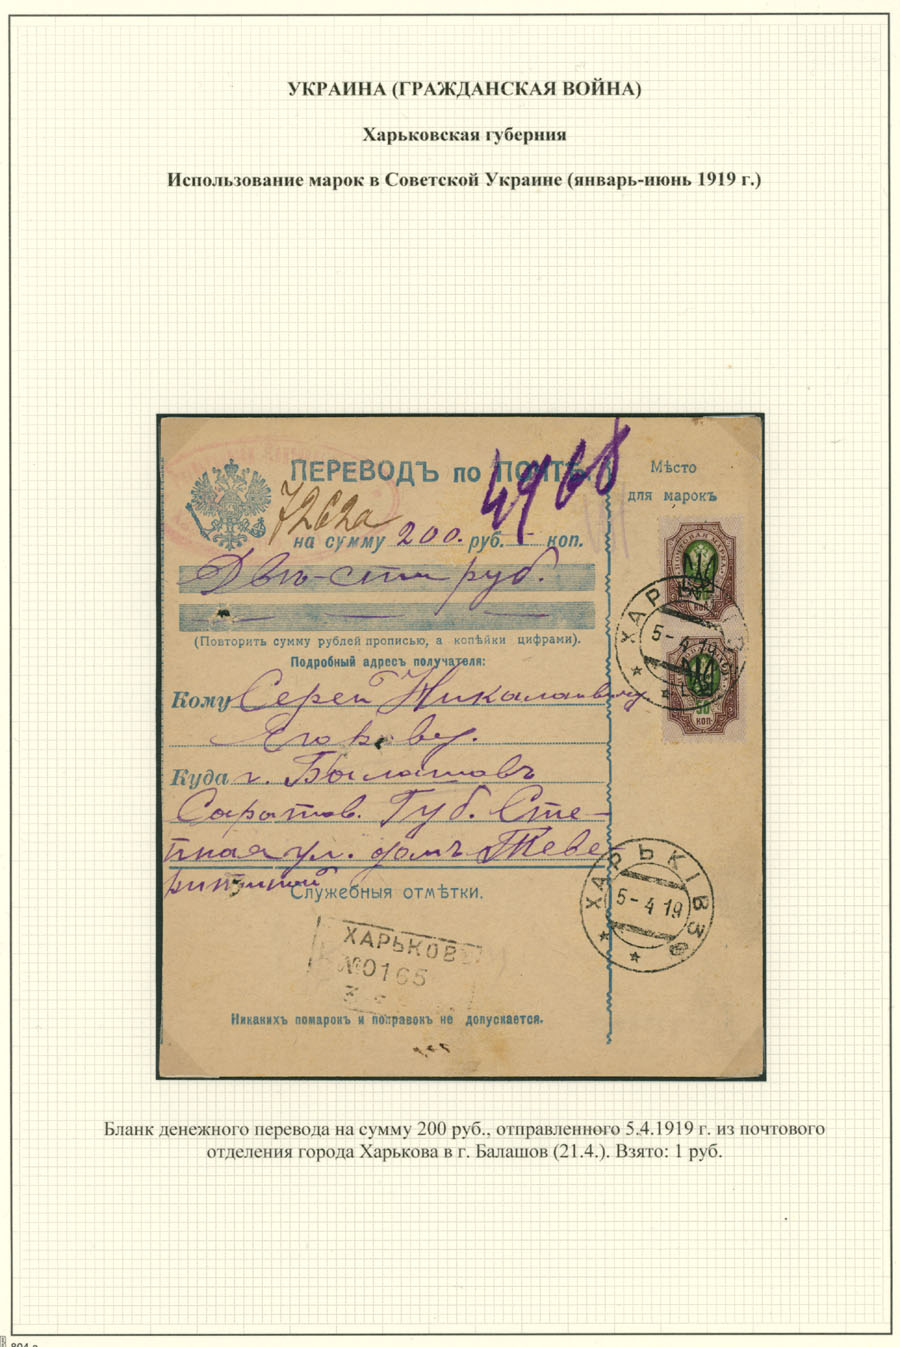 УКРАИНА (ГРАЖДАНСКАЯ ВОЙНА)
Харьковская губерния
Использование марок в Советской Украине (январь-июнь 1919 г.)
ПЕРЕВОДЪ по ПОЧТѢ
4968
Мѣсто
для марокъ
7262а
на сумму 200. руб. - коп.
Двѣ-сти руб.
ПОЧТОВАЯ МАРКА
КОП.
ХАРЬ
5-4 19
(Повторить сумму рублей прописью, а копѣйки цифрами).
Подробный адресъ получателя:
Кому Сергѣю Николаевичу
50
КОП.
Егорову.
Куда г. Балашовъ
Саратов. Губ. Сте-
пная ул. домъ
ХАРЬКІВ 3
5-4 19
Служебныя отмѣтки.
ХАРЬКОВЪ
№0165
Никакихъ помарокъ и поправокъ не допускается.
Бланк денежного перевода на сумму 200 руб., отправленного 5.4.1919 г. из почтового
отделения города Харькова в г. Балашов (21.4.). Взято: 1 руб.